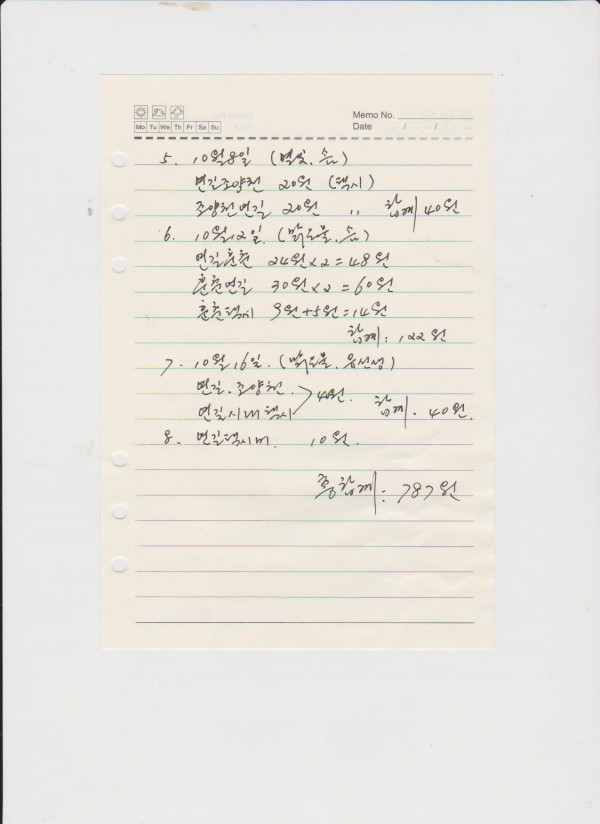 Mo Tu We Th Fr Sa Su
Memo No.
Date / /
5. 10월8일 (별빛, 손)
연길조양천 20원 (택시)
조양천연길 20원 〃 합계 40원
6. 10월12일. (맑은물, 손)
연길훈춘 24원×2=48원
훈춘연길 30원×2=60원
훈춘택시 9원+5원=14원
합계: 122원
7. 10월16일. (맑은물. 유선생)
연길. 조양천.
연길시내택시 > 40원. 합계. 40원.
8. 연길택시비. 10원.
총합계: 787원